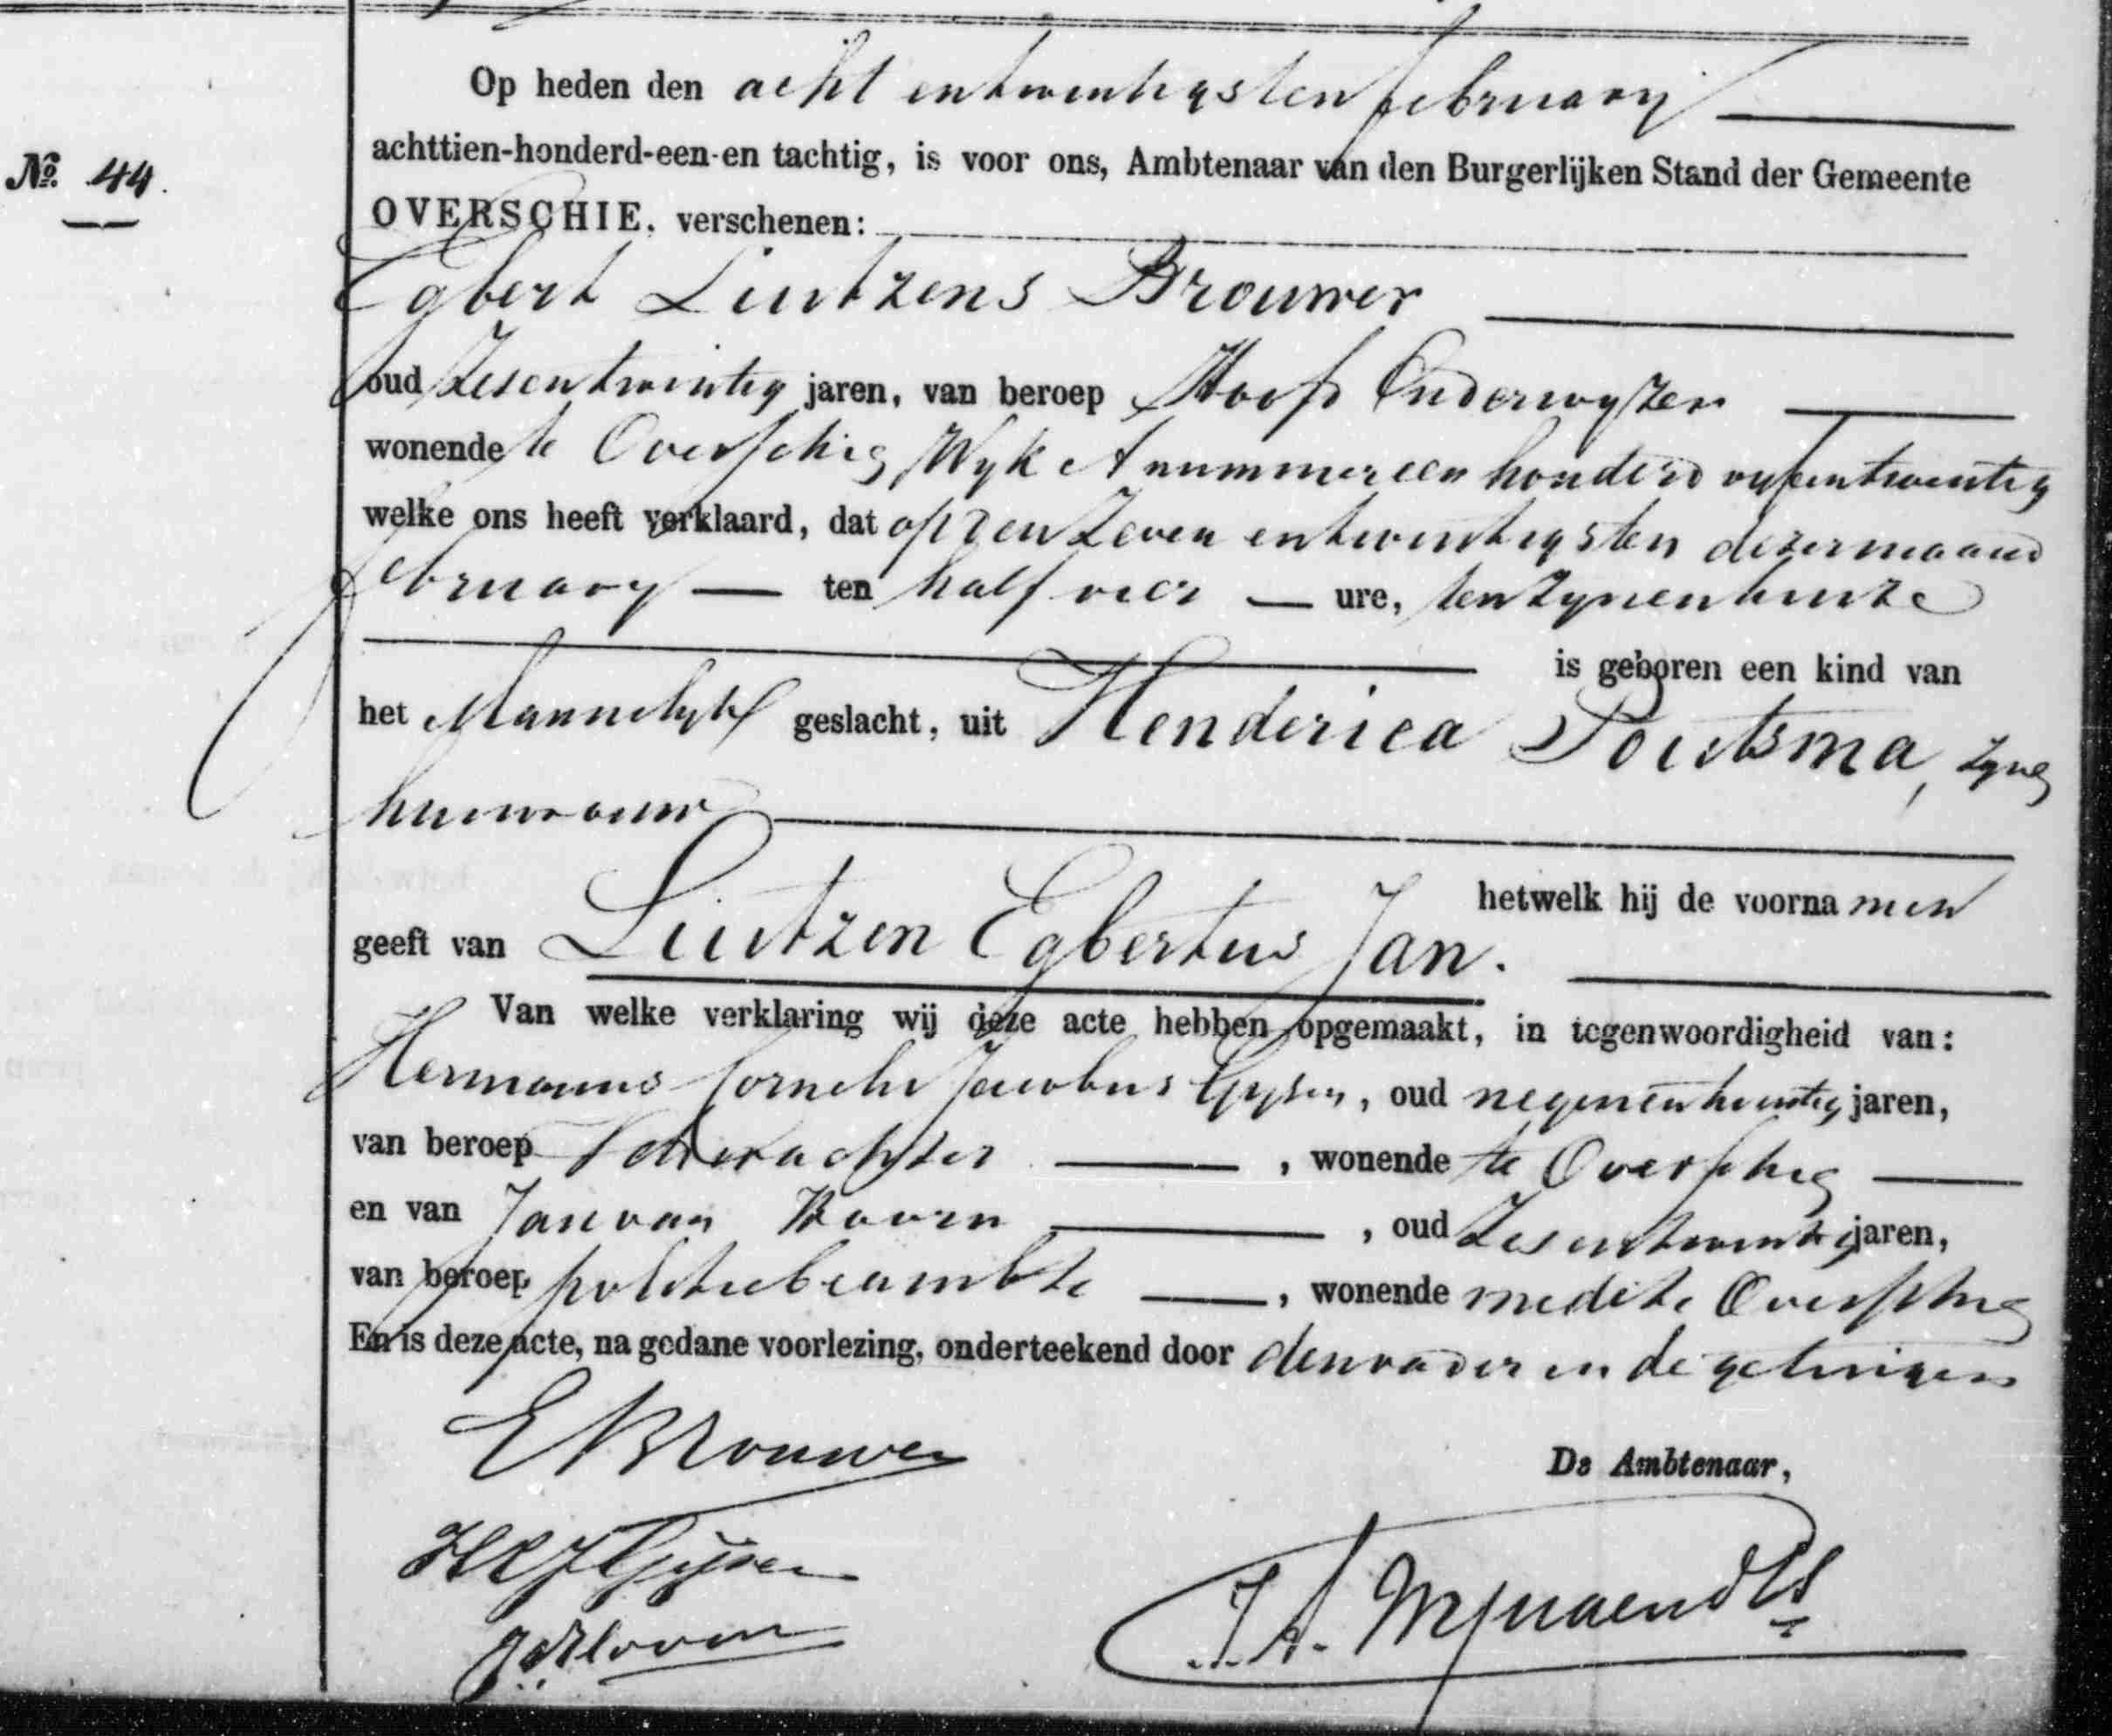 Op heden den acht entwintigsten february
achttien-honderd-een-en tachtig, is voor ons, Ambtenaar van den Burgerlijken Stand der Gemeente
No. 44.
OVERSCHIE, verschenen:
Egbert Liutzens Brouwer
oud zesentwintig jaren, van beroep Hoofd Onderwyzer
wonende te Overschie, Wyk A nummer een honderd vyfentwintig
welke ons heeft verklaard, dat op den zeven entwintigsten dezer maand
february ten half vier ure, ten zynen huize
is geboren een kind van
het Mannelyk geslacht, uit Henderica Poutsma, zyne
huisvrouw
hetwelk hij de voorna men
geeft van Liutzen Egbertus Jan.
Van welke verklaring wij deze acte hebben opgemaakt, in tegenwoordigheid van:
Hermanus Cornelis Jacobus Gysen, oud negenentwintig jaren,
van beroep , wonende te Overschie
en van Jan van Hoorn , oud zesentwintig jaren,
van beroep politiebeambte , wonende mede te Overschie
En is deze acte, na gedane voorlezing, onderteekend door den vader en de getuigen
E Brouwer
De Ambtenaar,
HCJ Gijsen
JvHoorn